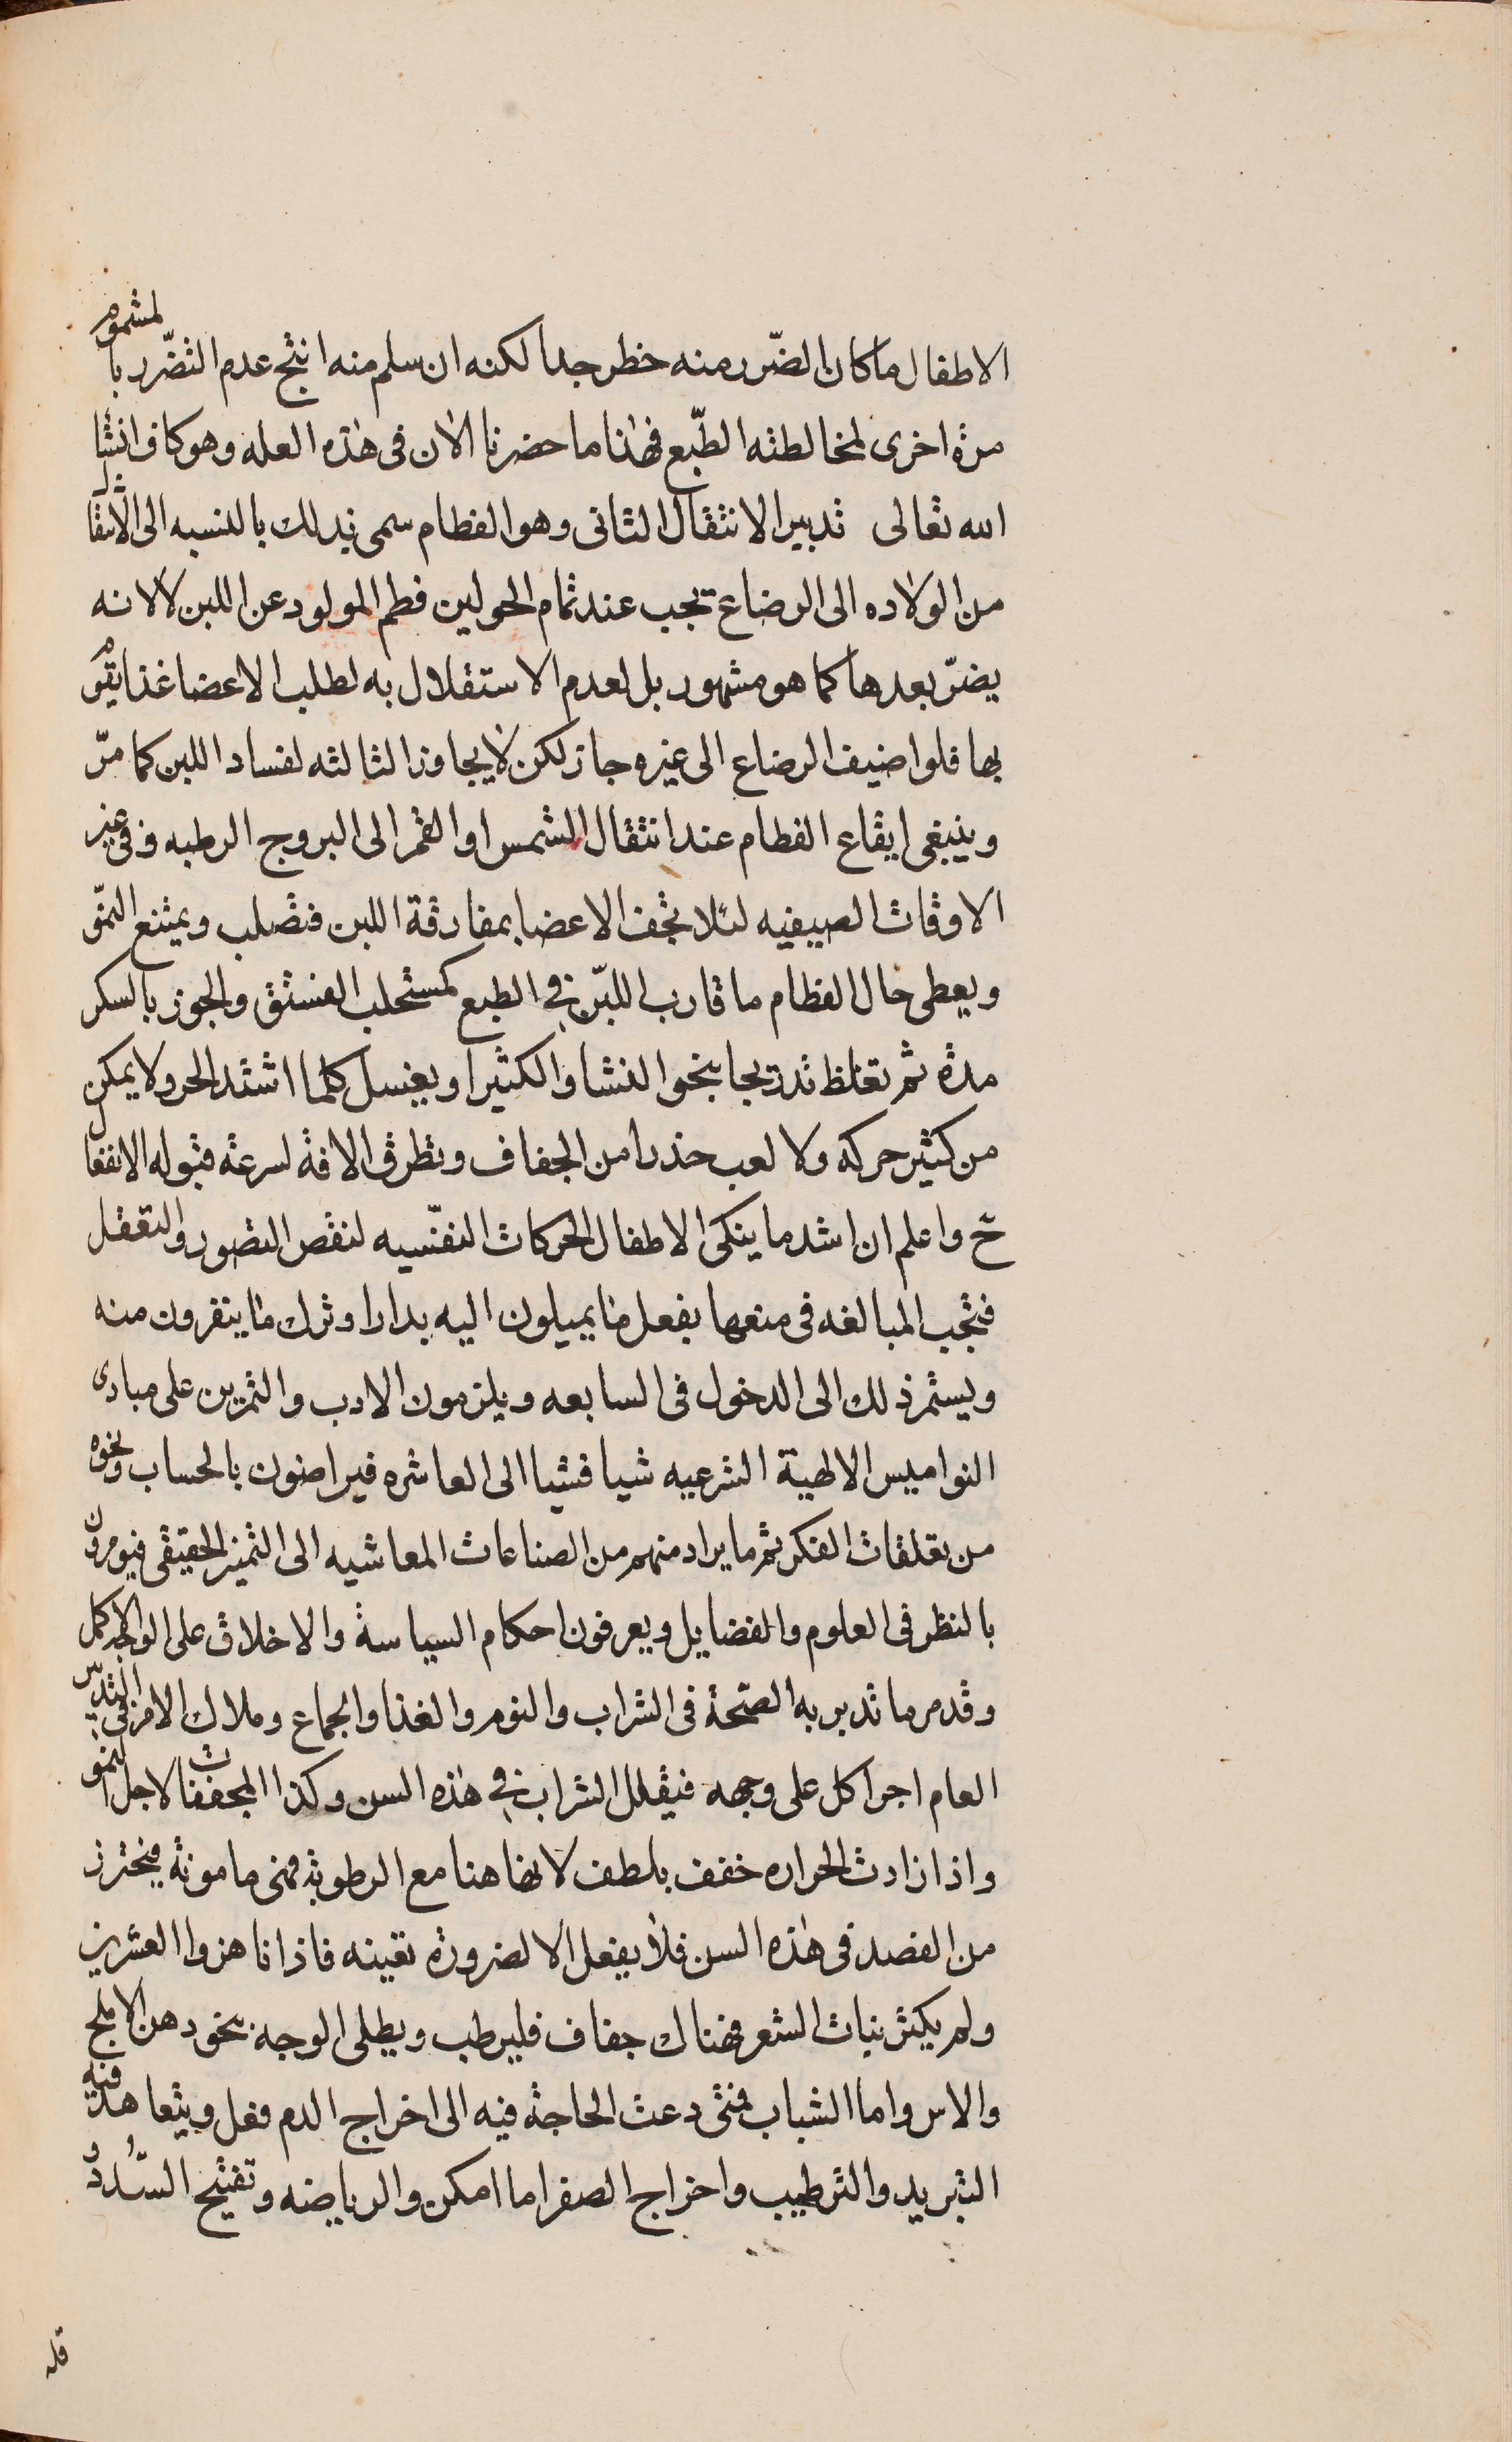 الاطفال ما كان الضّرر منه خطر جدا لكنه ان سلم منه انتج عدم التضّرر بالمشموم
مرة اخرى لمخالطته الطّبع فهذا ما حضرنا الان فى هذه العله وهو كاف انشا
الله تعالى تدبير الانتقال الثانى وهو الفطام سمى بذلك بالنسبه الى الانتقال
من الولاده الى الرضاع يجب عند تمام الحولين فطم المولود عن اللبن لا لانه
يضرّ بعدها كما هو مشهور بل لعدم الاستقلال به لطلب الاعضا غذا يقوم
بها فلو اضيف الرضاع الى غيره جاز لكن لا يجاوز الثالثه لفساد اللبن كما مرّ
وينبغى ايقاع الفطام عند انتقال الشمس او القمر الى البروج الرطبه وفى غير
الاوقات الصيفيه لئلا تجف الاعضا بمفارقة اللبن فتصلب ويمتنع النموّ
ويعطى حال الفطام ما قارب اللبن فى الطبع كمستحلب الفستق والجوز بالسكر
مدة ثم تغلظ تدريجا بنحو النشا والكثيرا ويغسل كلما اشتد الحر ولا يمكن
من كثير حركه ولا لعب حذرا من الجفاف وتطرق الافة لسرعة قبوله الانفعال
ح واعلم ان اشد ما ينكى الاطفال الحركات النفسّيه لنقص التصور والتعقل
فتجب المبالغه فى منعها بفعل ما يميلون اليه بدارا وترك ما ينفرون منه
ويستمر ذلك الى الدخول فى السابعه ويلزمون الادب والتمرين على مبادى
النواميس الالهية الشرعيه شيا فشيا الى العاشره فيراضون بالحساب ونحوه
من تعلقات الفكر ثم ما يراد منهم من الصناعات المعاشيه الى التميز الحقيقى فيومرون
بالنظر فى العلوم والفضايل ويعرفون احكام السياسة والاخلاق على الوجه الاكمل
وقد مر ما تدبر به الصّحة فى الشراب والنوم والغذا والجماع وملاك الامر فى التدبير
العام اجرا كل على وجهه فيقلل الشراب فى هذه السن وكذا المجففات لاجل النمو
واذا زادت الحراره خفف بلطف لانها هنا مع الرطوبة فهى مامونة فيحترز
من الفصد فى هذه السن فلا يفعل الا لضرورة تعينه فاذا ناهزوا العشرين
ولم يكثر نبات الشعر فهناك جفاف فليرطب ويطلى الوجه بنحو دهن الاملج
والاس واما الشباب فمتى دعت الحاجة فيه الى اخراج الدم فعل ويتعاهد فيه
التبريد والترطيب واخراج الصفرا ما امكن والرياضه وتفتيح السّدد و
قله